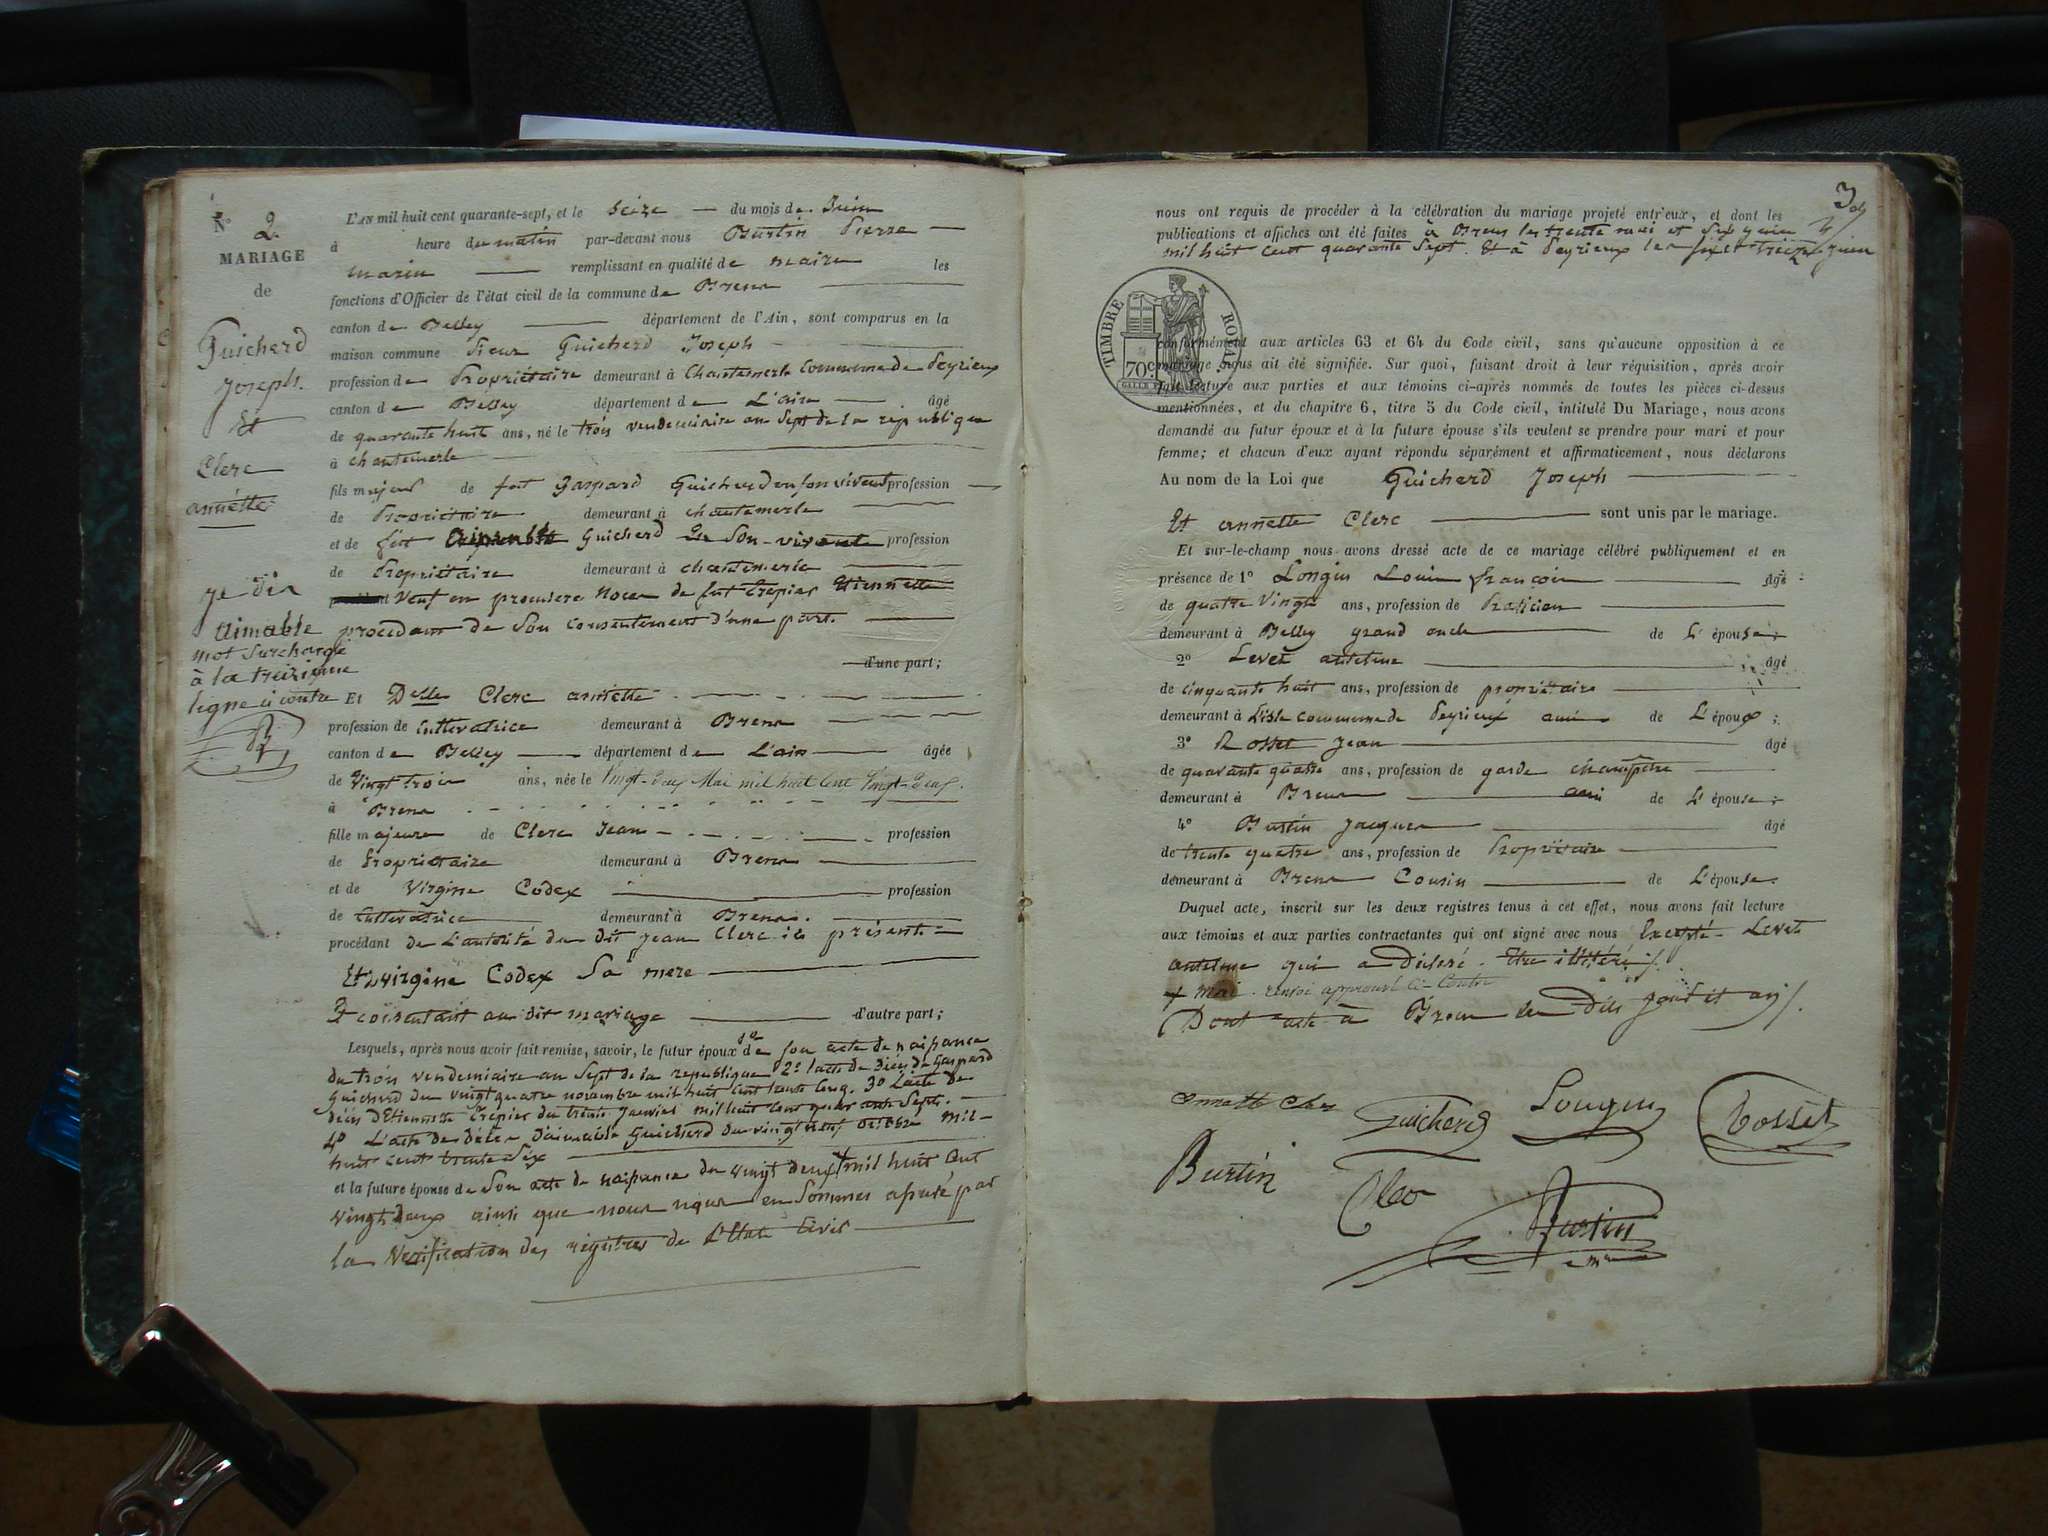 N° 2.
MARIAGE
de
Guicherd
Joseph.
Et
Clerc
annette
je dis
aimable
mot surchargé
à la treizieme
ligne ci contre
L'AN mil huit cent quarante-sept, et le seize du mois de Juin
à heure du matin par-devant nous Burtin Pierre
marin remplissant en qualité de maire les
fonctions d'Officier de l'état civil de la commune de Brens
canton de Belley département de l'Ain, sont comparus en la
maison commune Sieur Guicherd Joseph
profession de Propriétaire demeurant à Chantemerle commune de Peyrieux
canton de Belley département de L'ain âgé
de quarante huit ans, né le trois vendemiaire an Sept de la république
à chantemerle
fils majeur de feu Gaspard Guicherd en son vivant profession
de Propriétaire demeurant à chantemerle
et de feu aimable Guicherd en son vivante profession
de Propriétaire demeurant à chantemerle
Veuf en premiere Noce de feu Trepier Etiennette
procedant de Son consentement d'une part.
d'une part;
Et Delle Clerc annette
profession de Cultivatrice demeurant à Brens
canton de Belley département de L'ain âgée
de Vingt trois ans, née le Vingt-deux Mai mil huit Cent Vingt-deux.
à Brens
fille majeure de Clerc Jean profession
de Propriétaire demeurant à Brens
et de Virgine Codex profession
de Cultivatrice demeurant à Brens.
procédant de L'autorité du dit Jean Clerc ici présente
Et Virgine Codex Sa mere
Et consentant au dit mariage d'autre part;
Lesquels, après nous avoir fait remise, savoir, le futur époux 1o de son acte de naissance
du trois vendemiaire an Sept de la republique 2o l'acte de décès de Gaspard
Guicherd du vingt quatre novembre mil huit Cent trente Cinq. 3o L'acte de
décès d'Etiennette Trepier du trente Janvier mil huit Cent quarante Sept.
4o L'acte de décès d'aimable Guicherd du vingt neuf octobre mil
huit cent trente Six
et la future épouse de Son acte de naissance du vingt deux + mil huit Cent
vingt deux ainsi que nous nous en Sommes assuré par
la Verification des régistres de L'Etat Civil
3
nous ont requis de procéder à la célébration du mariage projeté entr'eux, et dont les
publications et affiches ont été faites à Brens les trente mai et Six juin
mil huit Cent quarante Sept. Et à Peyrieux les six et treize juin
TIMBRE ROYAL
70c
conformément aux articles 63 et 64 du Code civil, sans qu'aucune opposition à ce
mariage nous ait été signifiée. Sur quoi, faisant droit à leur réquisition, après avoir
fait lecture aux parties et aux témoins ci-après nommés de toutes les pièces ci-dessus
mentionnées, et du chapitre 6, titre 5 du Code civil, intitulé Du Mariage, nous avons
demandé au futur époux et à la future épouse s'ils veulent se prendre pour mari et pour
femme; et chacun d'eux ayant répondu séparément et affirmativement, nous déclarons
Au nom de la Loi que Guicherd Joseph
Et annette Clerc sont unis par le mariage.
Et sur-le-champ nous avons dressé acte de ce mariage célébré publiquement et en
présence de 1° Longin Louis françois âgé
de quatre Vingt ans, profession de Praticien
demeurant à Belley grand oncle de L'épouse;
2° Levet antelme âgé
de cinquante huit ans, profession de propriétaire
demeurant à Lisle commune de Peyrieux ami de L'époux;
3° Rosset Jean âgé
de quarante quatre ans, profession de garde champêtre
demeurant à Brens ami de L'épouse;
4° Burtin Jacques âgé
de trente quatre ans, profession de Propriétaire
demeurant à Brens Cousin de L'épouse.
Duquel acte, inscrit sur les deux registres tenus à cet effet, nous avons fait lecture
aux témoins et aux parties contractantes qui ont signé avec nous Excepté Levet
antelme qui a déclaré Etre illétéré
+ mai renvoi approuvé Ci-Contre
Dont acte à Brens les dits jour et an
annette Clerc Guicherd Longin Rosset
Burtin Clerc
Burtin